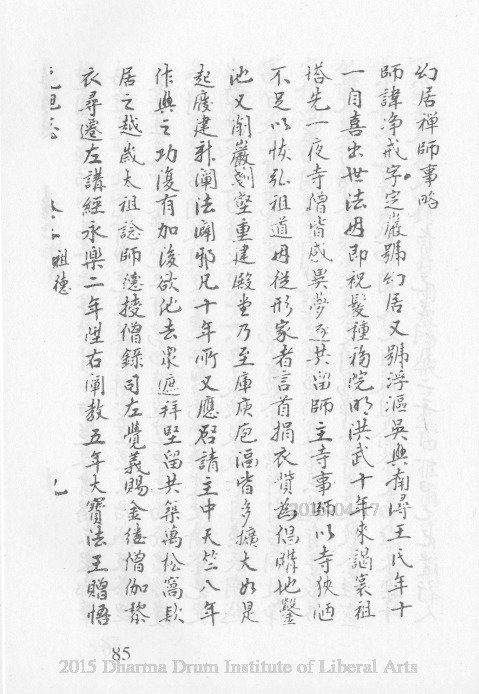 幻居禪師事略
師諱淨戒字定巖號幻居又號浮漚吳興南潯王氏年十
一自喜出世法母即祝髮種福院明洪武十年來謁寰祖
塔先一夜寺僧皆感異夢遂共留師主寺事師以寺狹陋
不足以恢弘祖道毋從形家者言首捐衣貲為倡購地鑿
池又削巖剗壑重建殿堂乃至庫庾庖湢皆多擴大如是
起廢建新闡法闢邪凡十年所又應啓請主中天竺八年
作興之功復有加後欲他去衆遮拜堅留共築萬松窩款
居之越歲太祖諗師德授僧錄司左覺義賜金縷僧伽黎
衣尋遷左講經永樂二年陞右闡教五年大寶法王贈悟
祖德
85
2015 Dharma Drum Institute of Liberal Arts